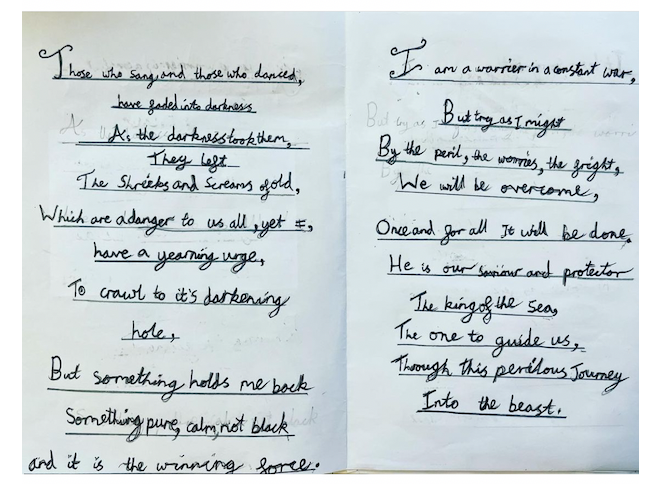 Those who sang, and those who danced,
have faded into darkness
As the darkness took them,
They left
The Shreeks and Screams of old,
Which are a danger to us all, yet I,
have a yearning urge,
To crawl to it's darkening
hole,
But something holds me back
Something pure, calm, not black
and it is the winning force.
I am a warrier in a constant war,
But try as I might
By the peril, the worries, the fright,
We will be overcome,
Once and for all It will be done.
He is our saviour and protector
The king of the Sea,
The one to guide us,
Through this perilous Journey
Into the beast.